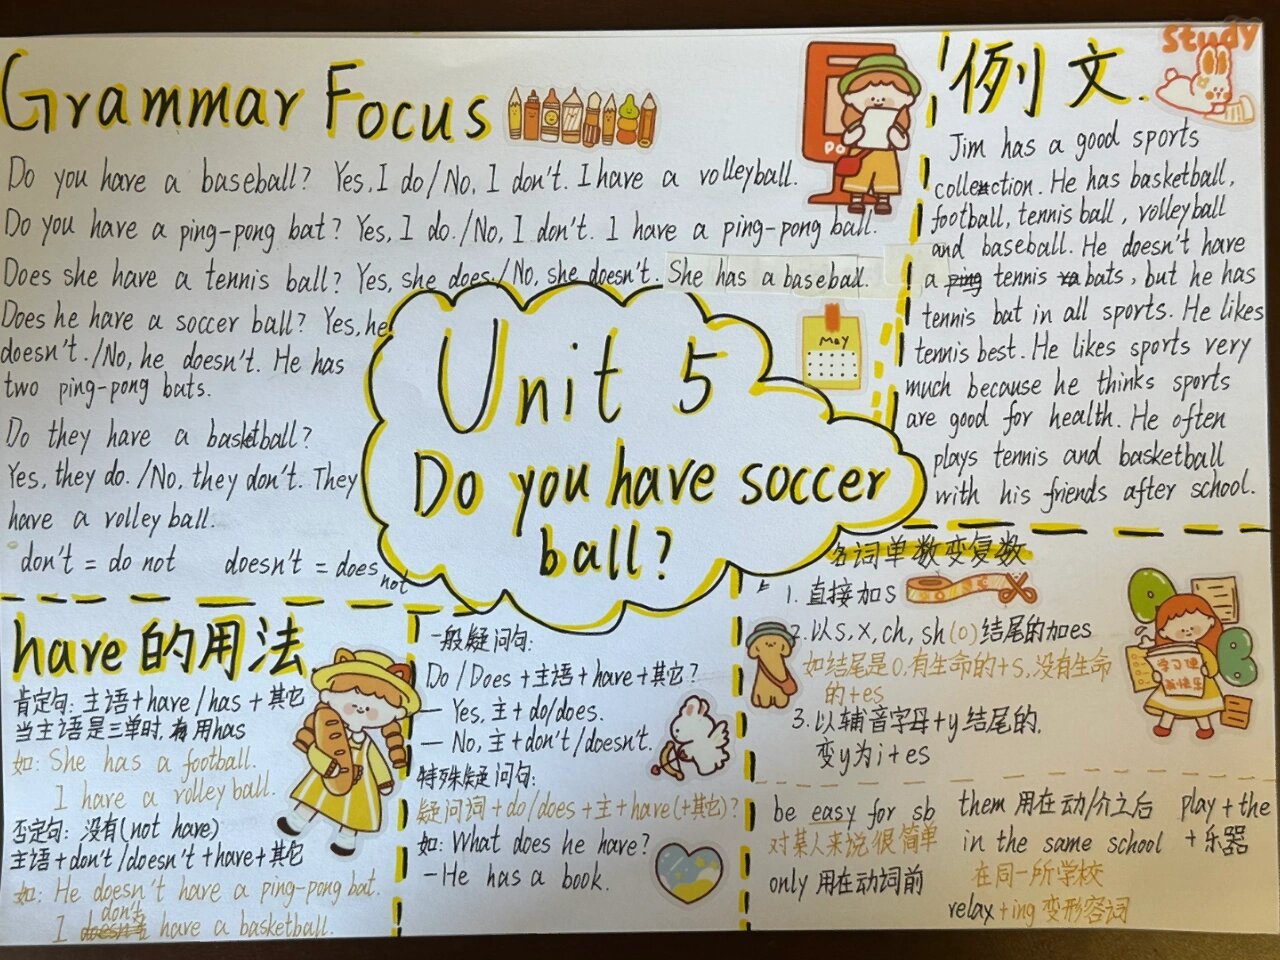 Grammar Focus
Do you have a baseball? Yes, I do/No, I don't. I have a volleyball.
Do you have a ping-pong bat? Yes, I do./No, I don't. I have a ping-pong ball.
Does she have a tennis ball? Yes, she does./No, she doesn't. She has a baseball.
Does he have a soccer ball? Yes, he
doesn't./No, he doesn't. He has
two ping-pong bats.
Do they have a basketball?
Yes, they do./No, they don't. They
have a volleyball.
don't = do not doesn't = does not
Unit 5
Do you have soccer
ball?
例文.
study
Jim has a good sports
collection. He has basketball,
football, tennis ball, volleyball
and baseball. He doesn't have
a tennis bats, but he has
tennis bat in all sports. He likes
tennis best. He likes sports very
much because he thinks sports
are good for health. He often
plays tennis and basketball
with his friends after school.
MAY
PO
have的用法
肯定句: 主语+have/has+其它
当主语是三单时, 用has
如: She has a football.
I have a volleyball.
否定句: 没有(not have)
主语+don't/doesn't+have+其它
如: He doesn't have a ping-pong bat.
I don't have a basketball.
一般疑问句:
Do/Does+主语+have+其它?
— Yes, 主+do/does.
— No, 主+don't/doesn't.
特殊疑问句:
疑问词+do/does+主+have(+其它)?
如: What does he have?
—He has a book.
名词单数变复数
1. 直接加s
2. 以s, x, ch, sh(o)结尾的加es
如结尾是o, 有生命的+s, 没有生命
的+es
3. 以辅音字母+y结尾的,
变y为i+es
学习使
我快乐
be easy for sb
对某人来说很简单
only 用在动词前
them 用在动/介之后
in the same school
在同一所学校
relax+ing变形容词
play+the
+乐器